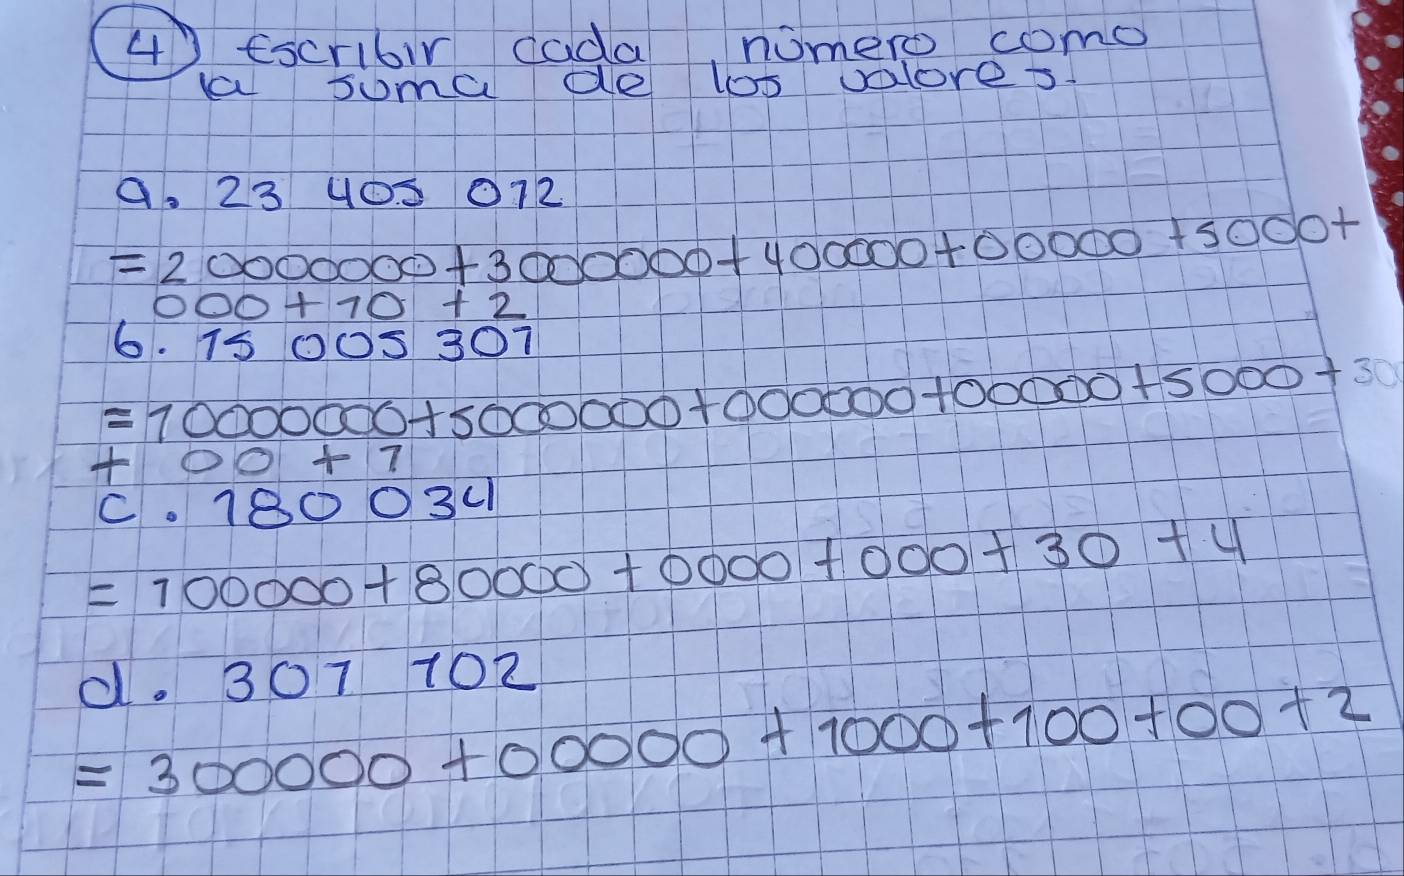 4) Escribir cada número como
la suma de los valores.
a. 23 405 012
= 20000000+3000000+400000+00000+5000+
000+10+2
b. 15 005 301
= 10000000+5000000+000000+00000+5000+30
+ 00 + 1
c. 180 034
= 100000+80000+0000+000+30+4
d. 301 102
= 300000+00000+1000+100+00+2